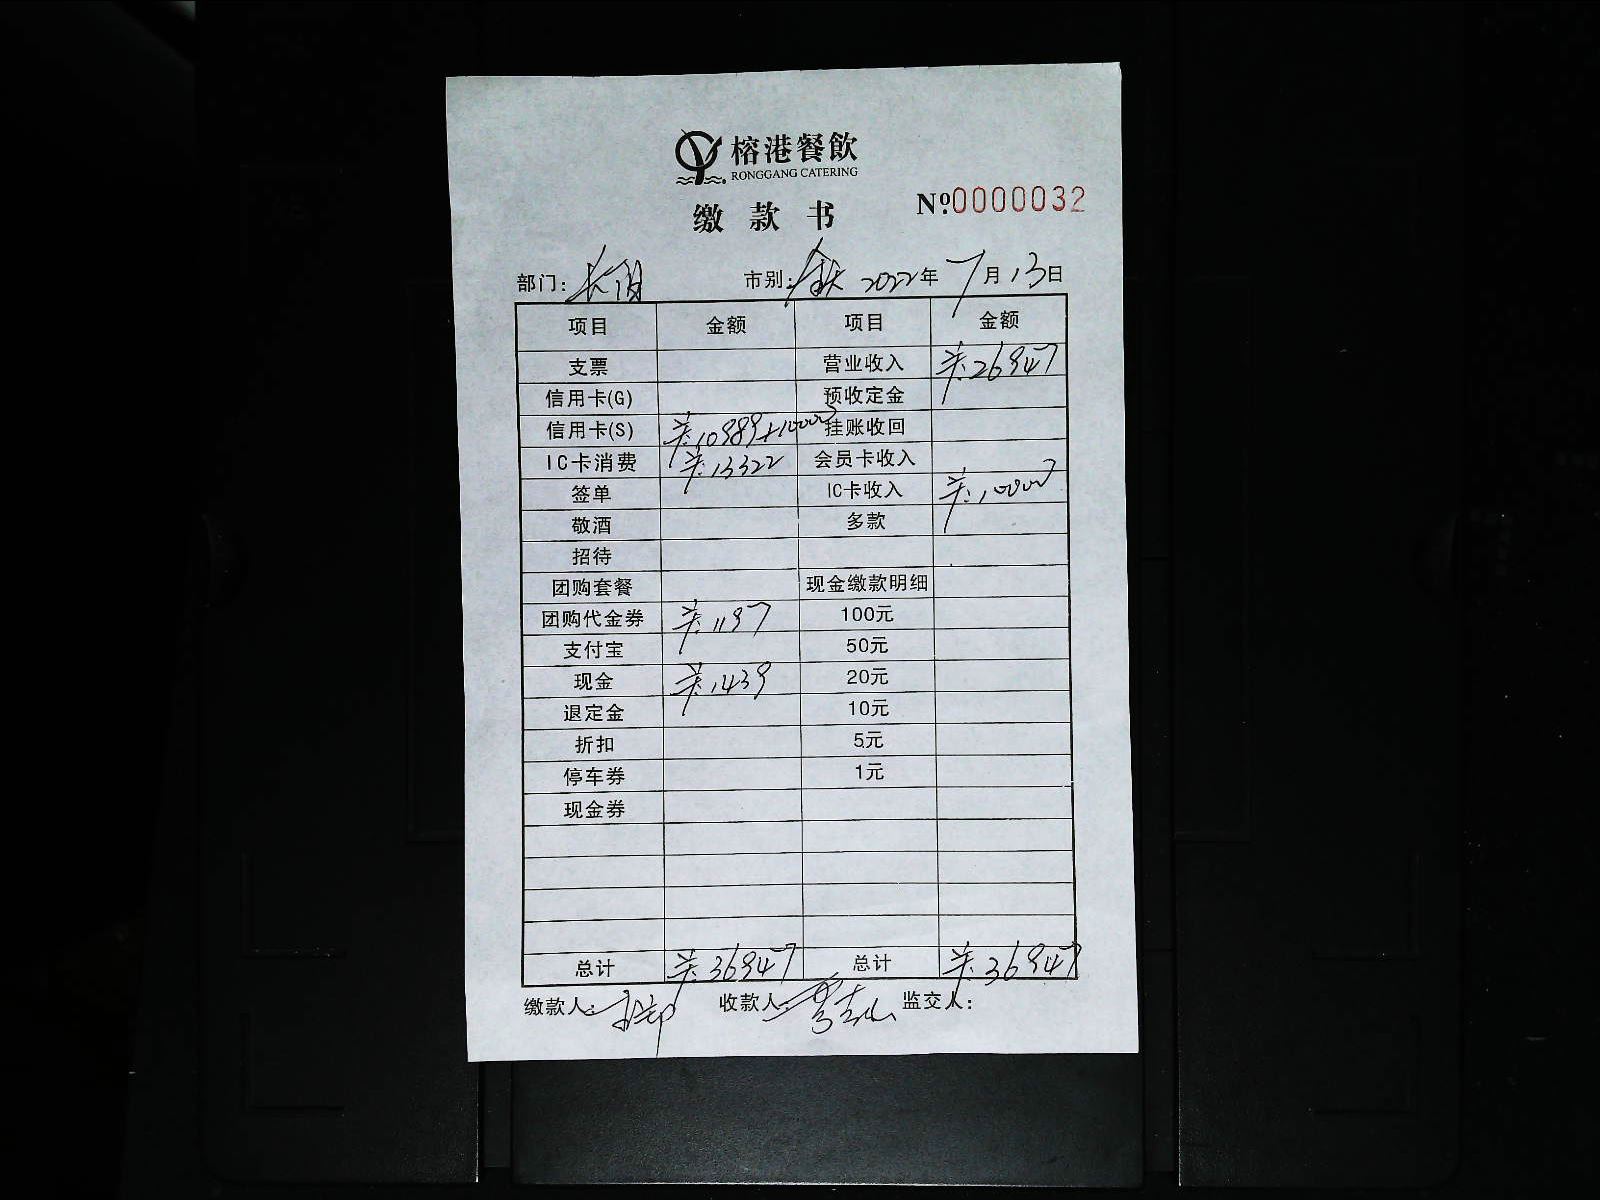 榕港餐飲
RONGGANG CATERING
缴款书
№0000032
部门: 市别: 全天 2022年7月13日
项目 金额 项目 金额
支票 营业收入 ¥:26947
信用卡(G) 预收定金
信用卡(S) ¥:10989+10000 挂账收回
IC卡消费 ¥:13322 会员卡收入
签单 IC卡收入 ¥:10000
敬酒 多款
招待
团购套餐 现金缴款明细
团购代金券 ¥:1197 100元
支付宝 50元
现金 ¥:1439 20元
退定金 10元
折扣 5元
停车券 1元
现金券
总计 ¥:36947 总计 ¥:36947
缴款人: 收款人: 监交人: